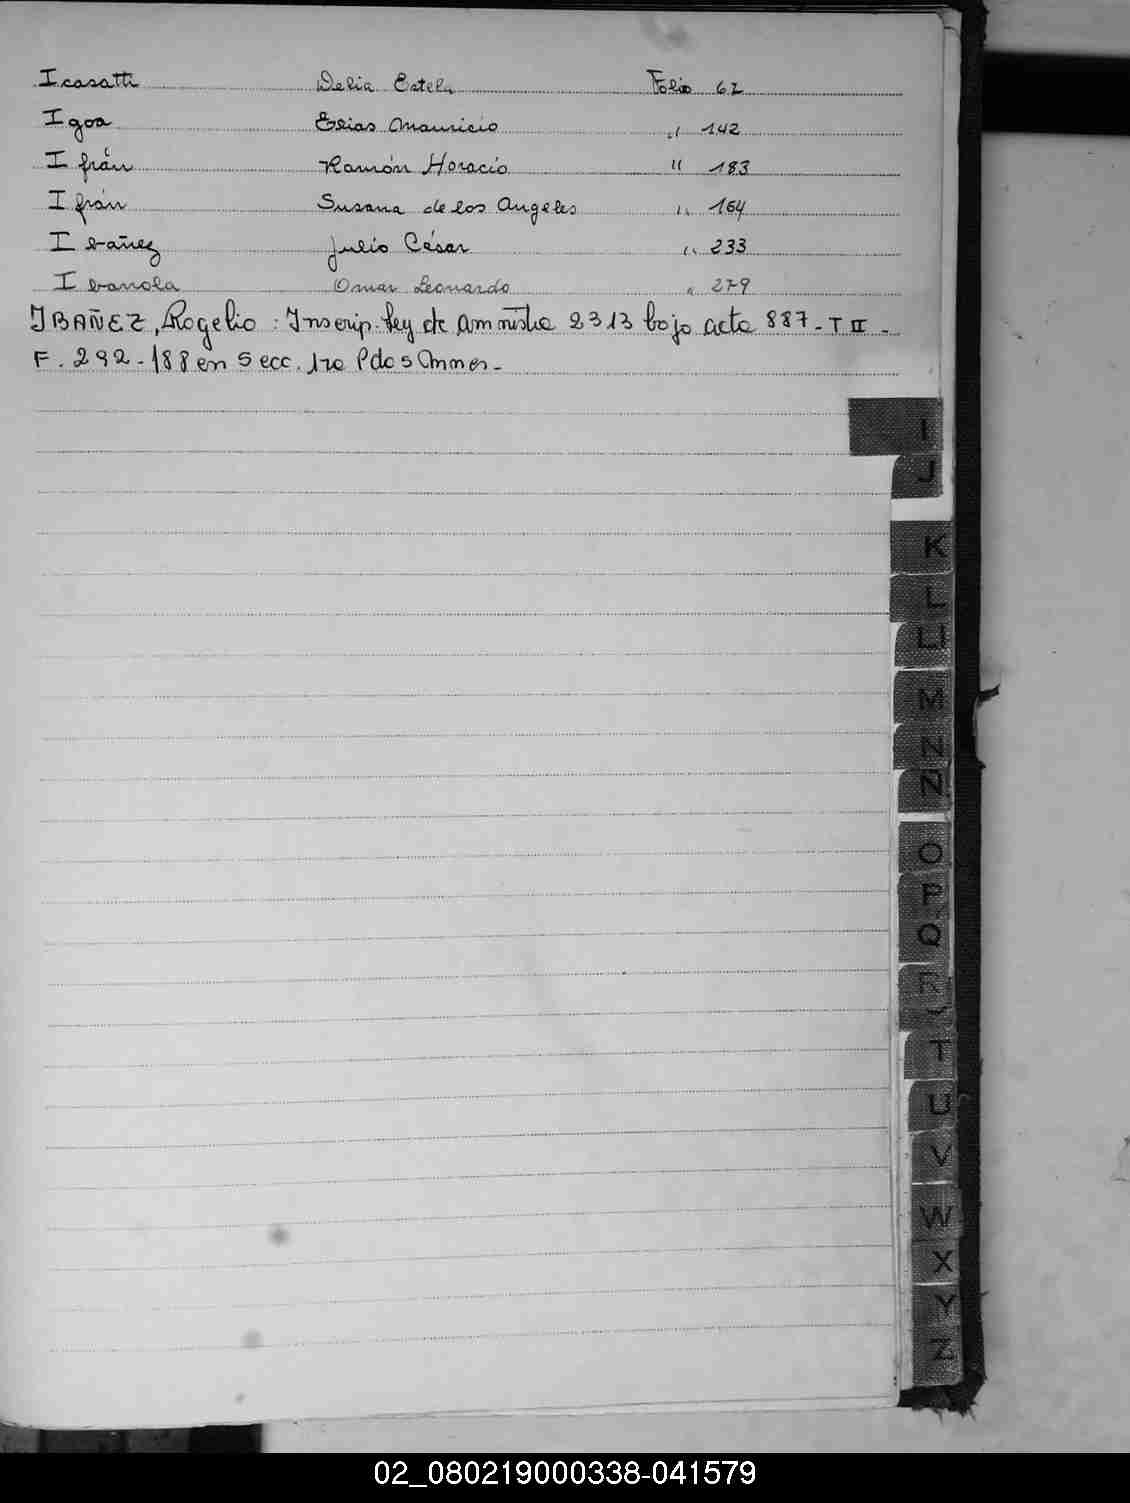 Icasatti Delia Estela Folio 62
Igoa Elias Mauricio " 142
Ifrán Ramón Horacio " 183
Ifrán Susana de los Angeles " 164
Ibañez Julio César " 233
Ibarrola Omar Leonardo " 279
IBAÑEZ, Rogelio: Inscrip. Ley de Amnistia 2313 bajo acta 887-TII-
F. 292-188 en Secc. 1ra
I
J
K
L
LL
M
N
Ñ
O
P
Q
R
T
U
V
W
X
Y
Z
02_080219000338-041579